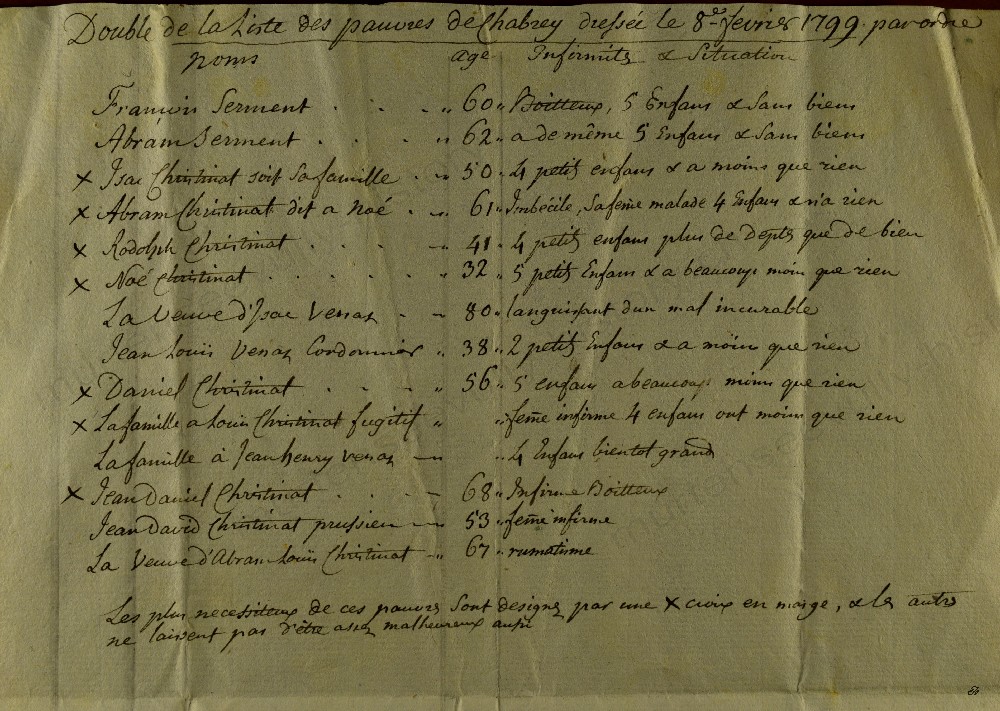 Double de la Liste des pauvres de Chabrey dressée le 8e fevrier 1799 par ordre
noms age Infirmités & Situation
François Serment . . . " 60 " Boitteux, 5 Enfans & Sans biens
Abram Serment . . . " 62 " a de même 5 Enfans & Sans biens
x Isac Christinat soit Sa famille . " 50 " 4 petits enfans & a moins que rien
x Abram Christinat dit a Noé . " 61 " Imbécile, Sa feme malade 4 Enfans & n'a rien
x Rodolph Christinat . . . " 41 " 4 petits enfans plus de Depts que de bien
x Noé Christinat . . . . . " 32 " 5 petits Enfans & a beaucoup moin que rien
La Veuve d'Isac Venaz . " 80 " languissant dun mal incurable
Jean Louïs Venaz Cordonnier " 38 " 2 petits Enfans & a moïn que rien
x Daniel Christinat . . . " 56 " 5 enfans a beaucoup moins que rien
x La famille a Louïs Christinat fugitif " " feme infirme 4 enfans ont moins que rien
La famille à Jean henry Venaz " " 4 Enfans bientot grand
x Jean Daniel Christinat . . . " 68 " Infirme Boitteux
Jean David Christinat prussien " 53 " feme infirme
La Veuve d'Abram Louïs Christinat " 67 " rumatisme
Les plus necessiteux de ces pauvres Sont designez par une x croix en marge, & les autres
ne laissent pas d'être assez malheureux aussi